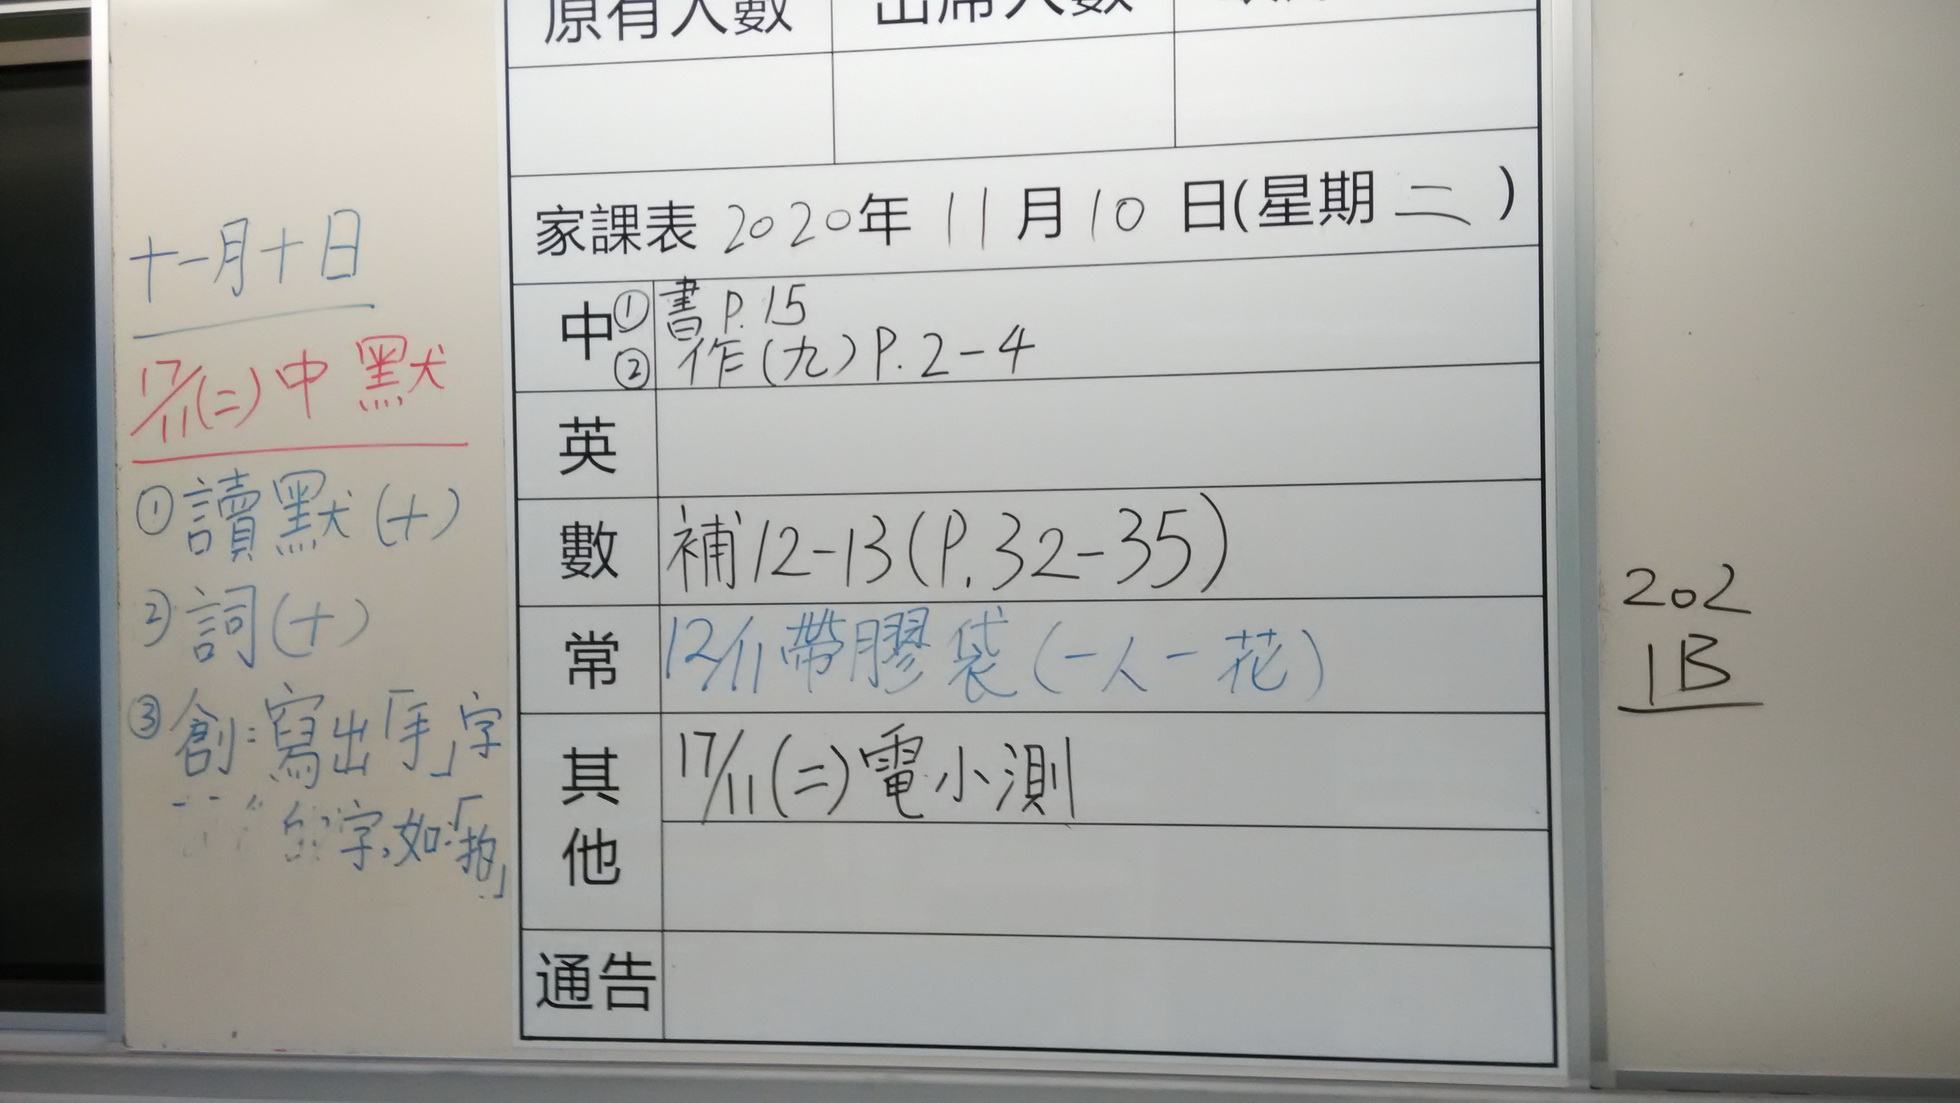 十一月十日
17/11(二)中默
①讀默(十)
②詞(十)
③創:寫出「手」字
字,如:「抱」
原有人數 出席人數
家課表 2020年 11月10日(星期二)
中 ①書P.15
②作(九)P.2-4
英
數 補12-13(P.32-35)
常 12/11帶膠袋(一人一花)
其他 17/11(二)電小測
通告
202
1B